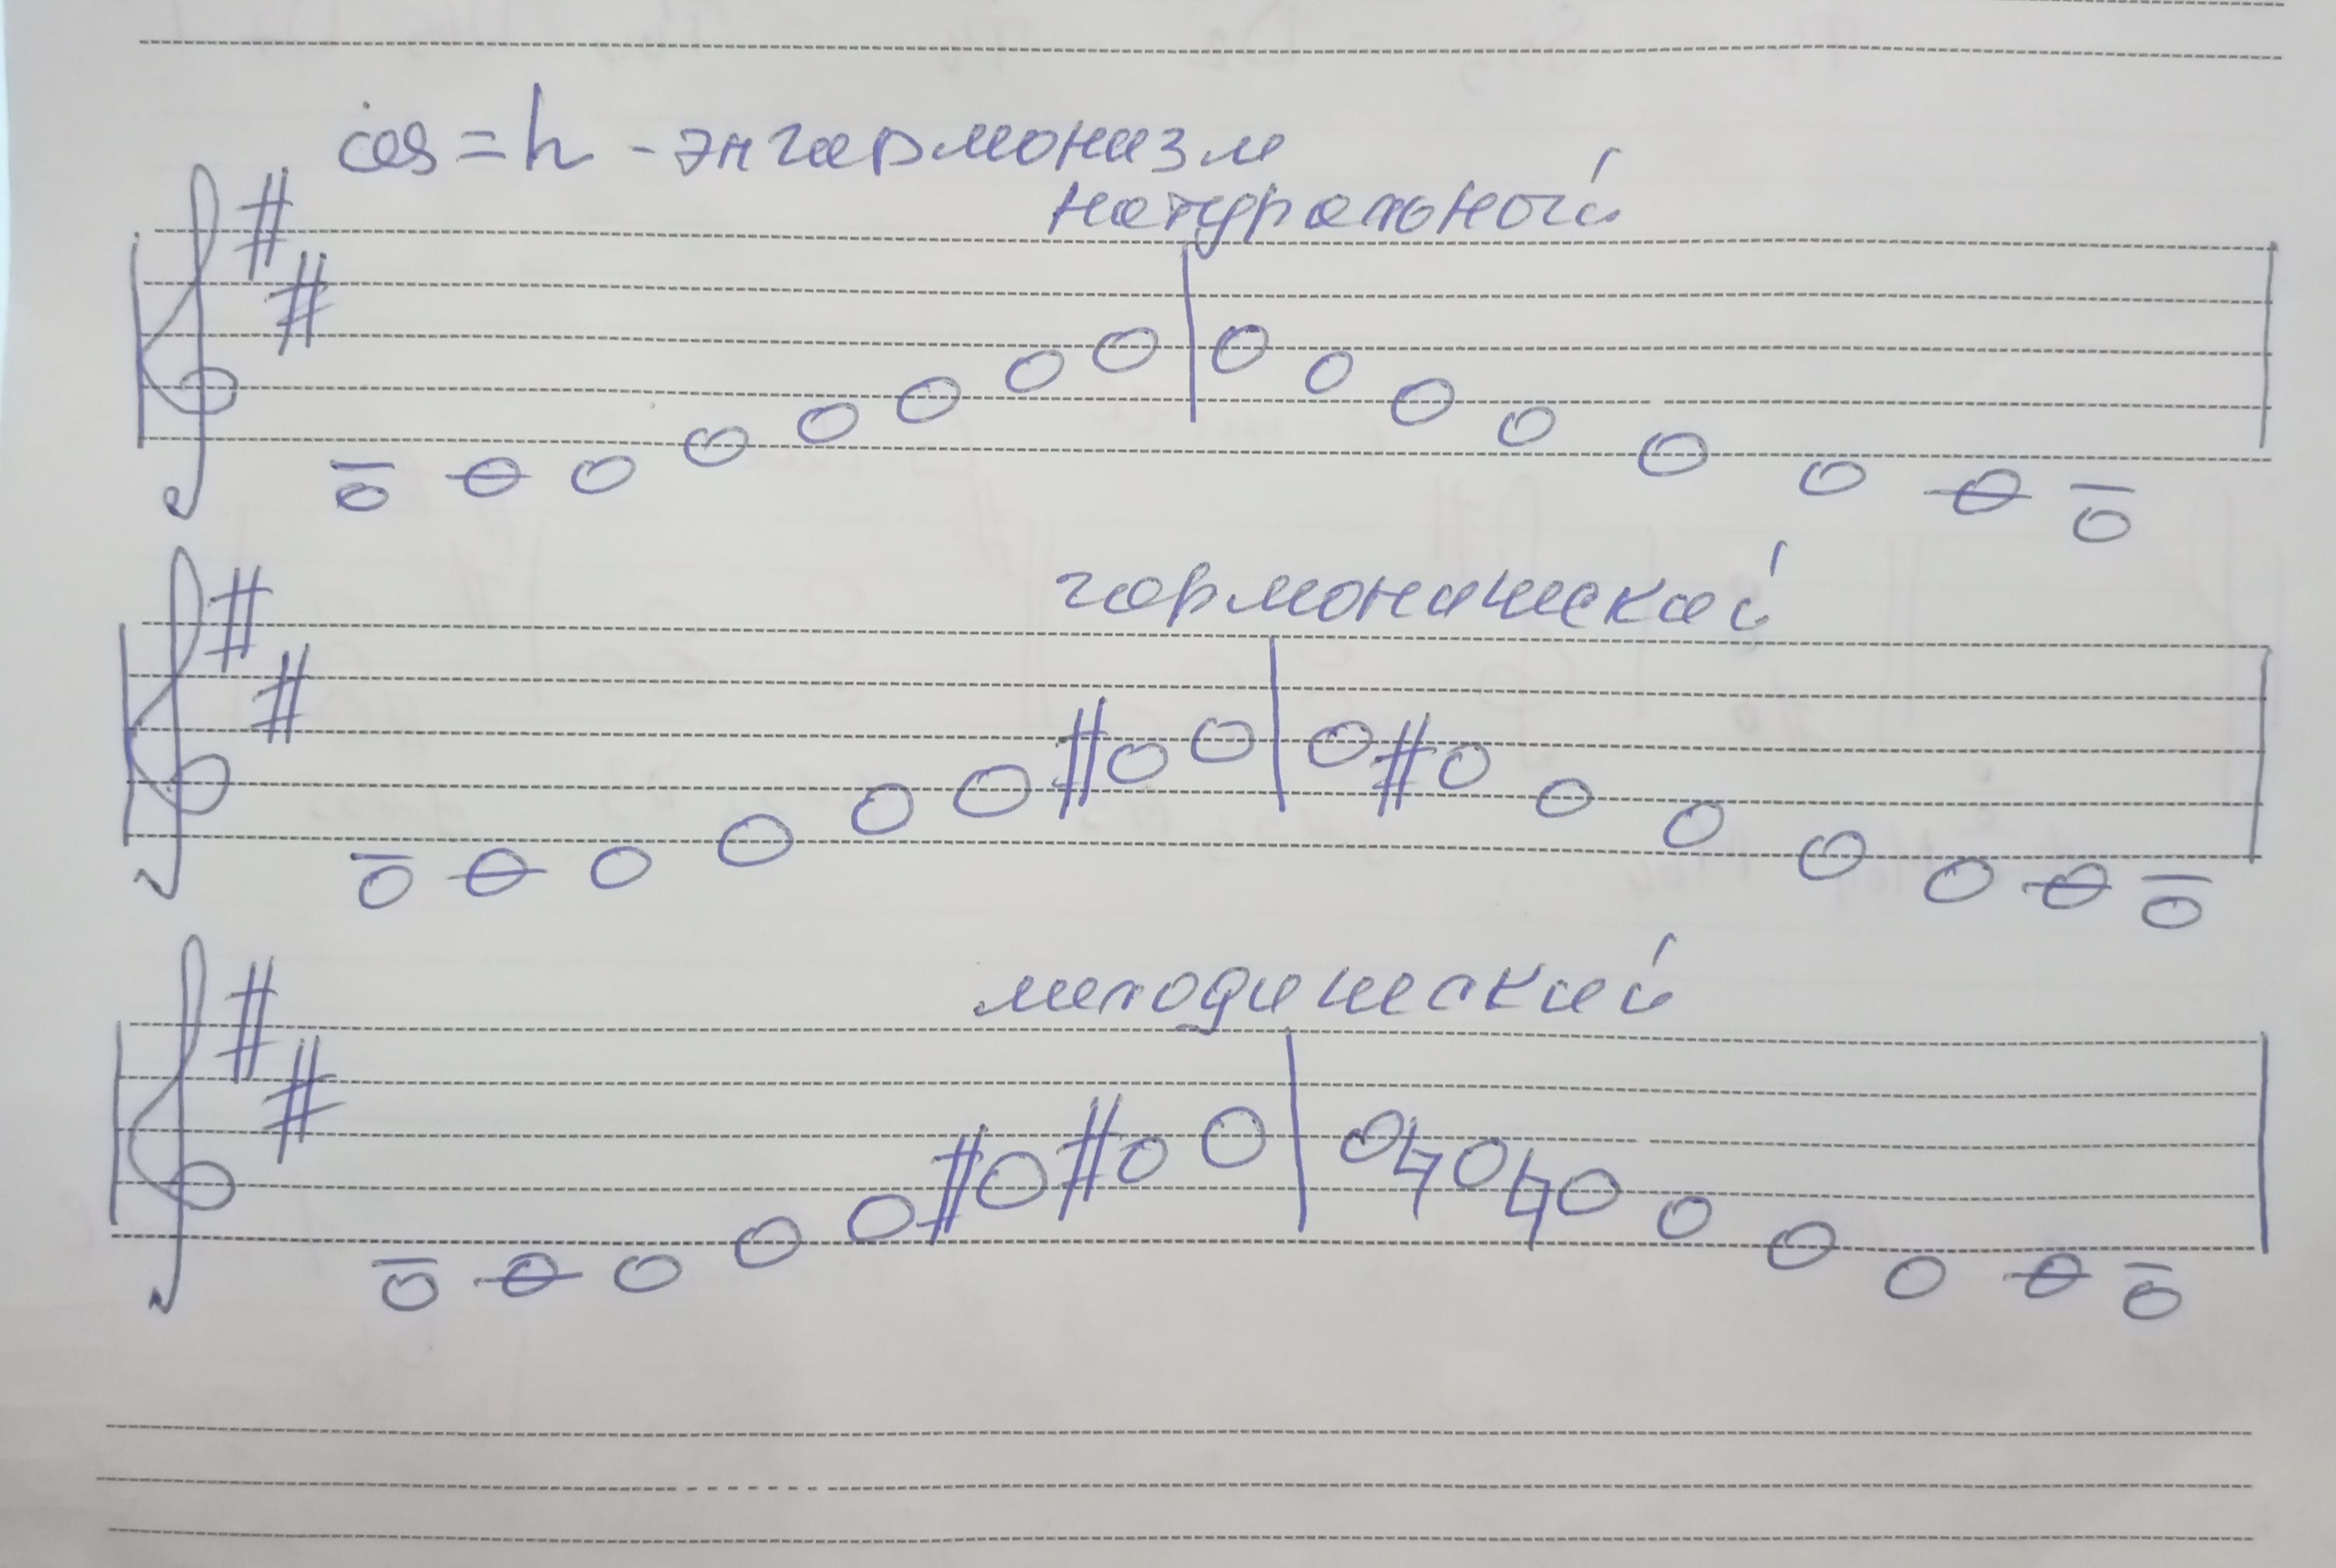 ces = h - энгармонизм
натуральный
гармонический
мелодический